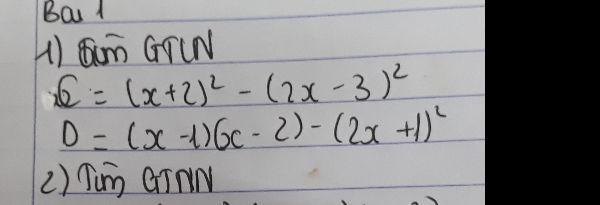 Bài 1
1) Tìm GTLN
C = (x+2)² - (2x - 3)²
D = (x - 1)(x - 2) - (2x + 1)²
2) Tìm GTNN